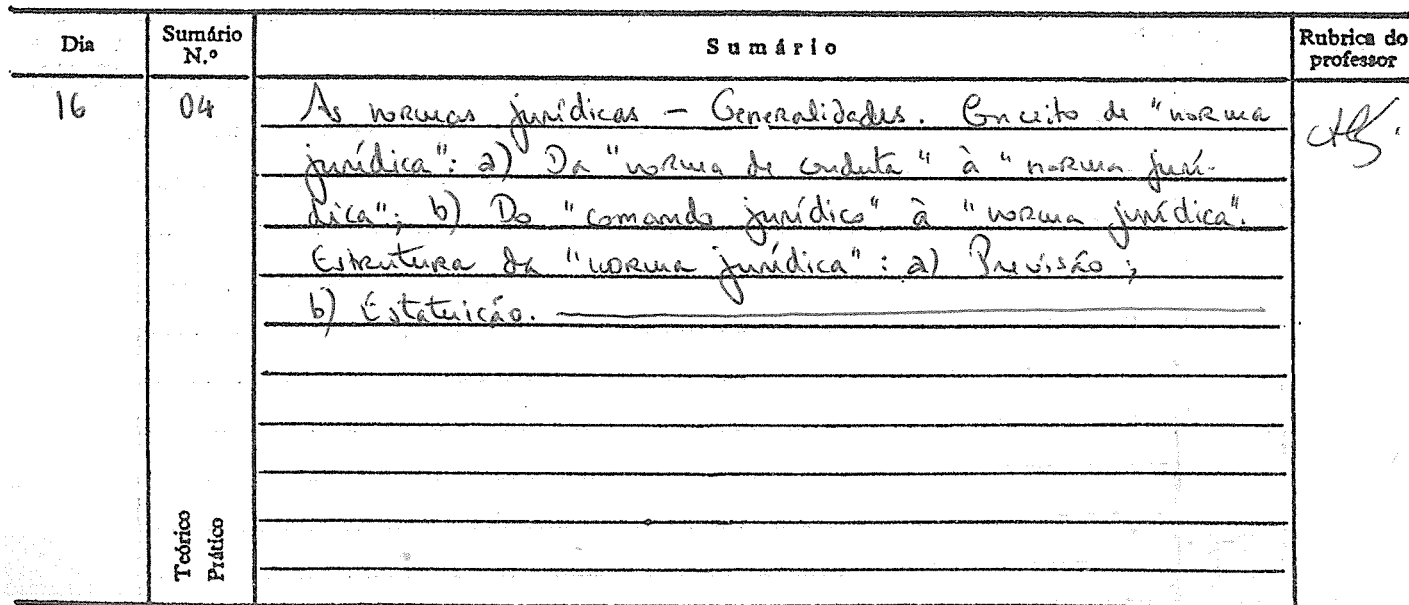 Dia
Sumário
N.º
Sumário
Rubrica do
professor
16
04
As normas jurídicas – Generalidades. Conceito de "norma
jurídica": a) Da "norma de conduta" à "norma jurí-
dica"; b) Do "comando jurídico" à "norma jurídica".
Estrutura da "norma jurídica": a) Previsão;
b) Estatuição.
Teórico
Prático